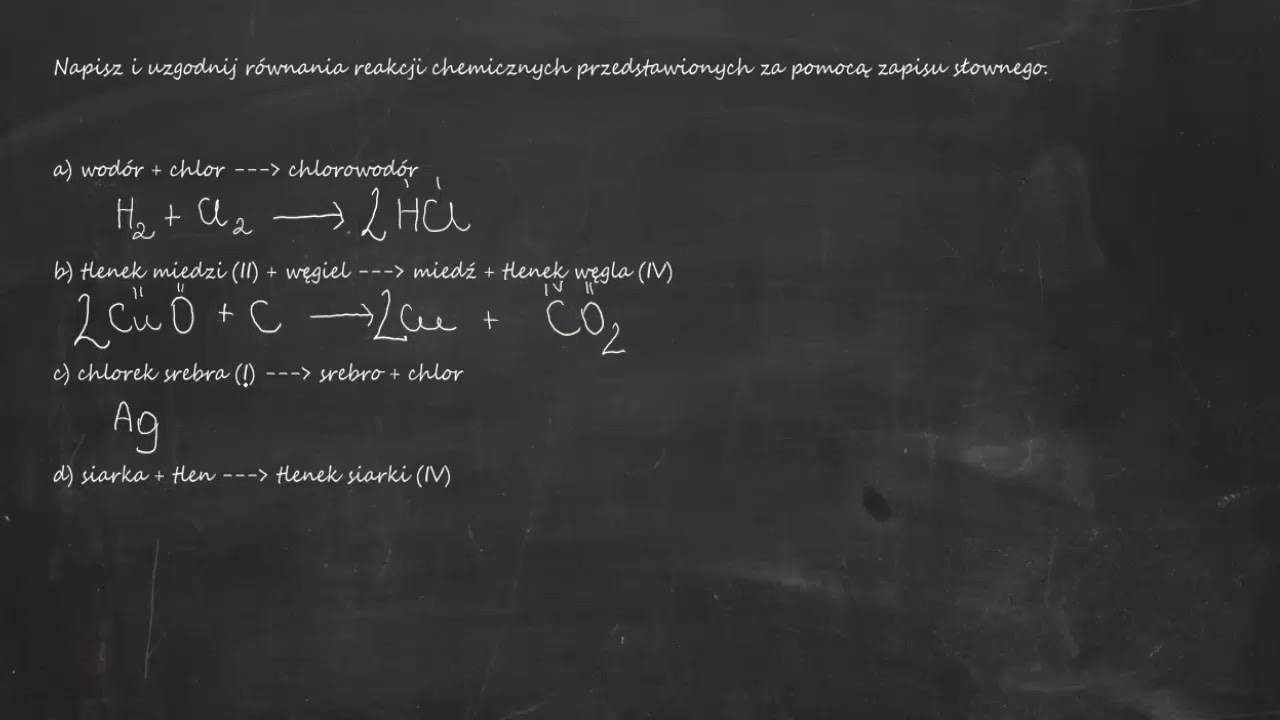 Napisz i uzgodnij równania reakcji chemicznych przedstawionych za pomocą zapisu słownego.
a) wodór + chlor ---> chlorowodór
I I
H₂ + Cl₂ ⟶ 2HCl
b) tlenek miedzi (II) + węgiel ---> miedź + tlenek węgla (IV)
II II IV II
2CuO + C ⟶ 2Cu + CO₂
c) chlorek srebra (I) ---> srebro + chlor
Ag
d) siarka + tlen ---> tlenek siarki (IV)